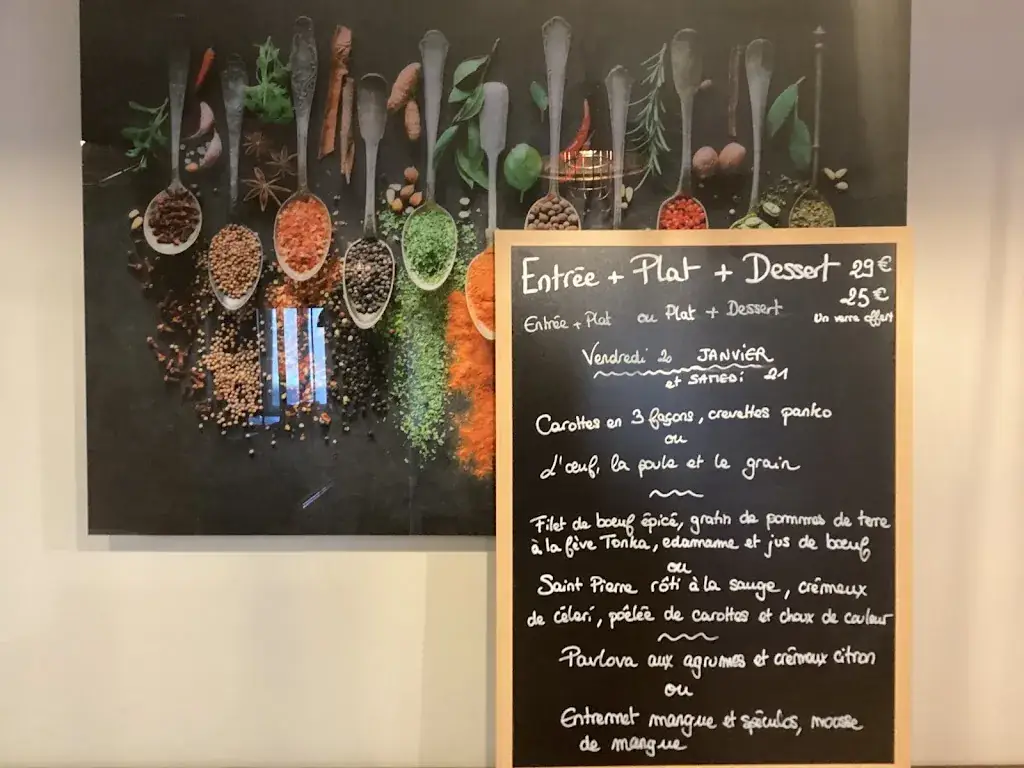 Entrée + Plat + Dessert 29€
25€
Entrée + Plat ou Plat + Dessert Un verre offert
Vendredi 20 JANVIER
et SAMEDI 21
Carottes en 3 façons, crevettes panko
ou
L'œuf, la poule et le grain
Filet de bœuf épicé, gratin de pommes de terre
à la fève Tonka, edamame et jus de bœuf
ou
Saint Pierre rôti à la sauge, crémeux
de céleri, poêlée de carottes et choux de couleur
Pavlova aux agrumes et crémeux citron
ou
Entremet mangue et spéculos, mousse
de mangue